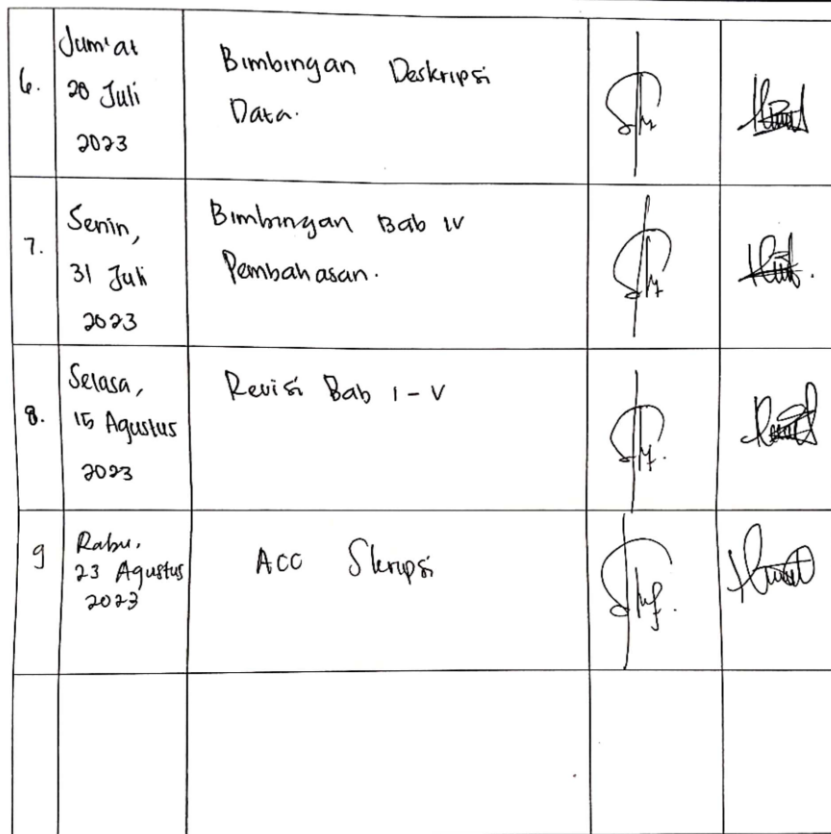 6.
Jum'at
28 Juli
2023
Bimbingan Deskripsi
Data.
7.
Senin,
31 Juli
2023
Bimbingan Bab IV
Pembahasan.
8.
Selasa,
15 Agustus
2023
Revisi Bab I - V
9
Rabu,
23 Agustus
2023
ACC Skripsi